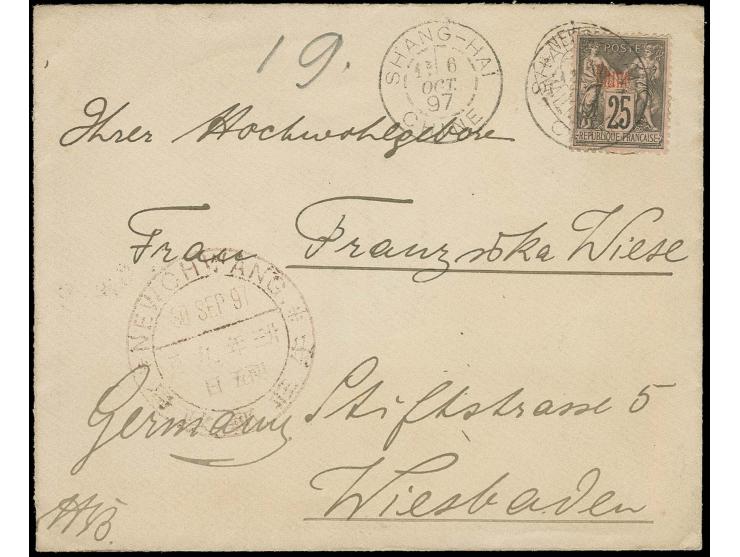 19.
SHANG-HAI
6
OCT.
97
CHINE
POSTE
Chine
25
REPUBLIQUE FRANÇAISE
Ihrer Hochwohlgebore
Frau Franziska Wiese
NEWCHWANG.
30 SEP 97
Germany
Stiftstrasse 5
Wiesbaden